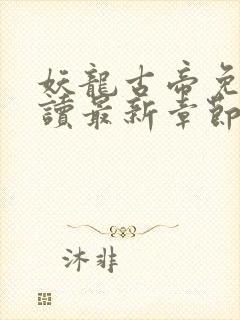 妖龍古帝免
讀最新章節
沐非